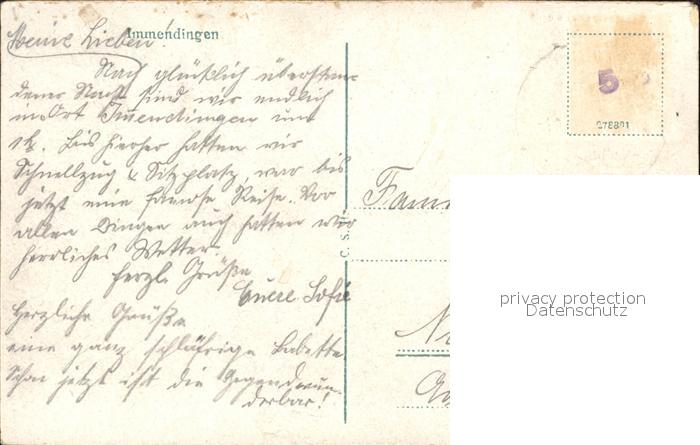 Immendingen
Meine Lieben!
Nach glücklich überstan-
dener Nacht sind wir endlich
im Ort Immendingen um
1h. Bis hierher hatten wir
Schnellzug & Sitzplatz, war bis
jetzt eine famose Reise. Vor
allen Dingen auch hatten wir
herrliches Wetter.
Herzl. Grüße
Euere Sofie
Herzliche Grüße
eine ganz schläfrige Babette
Schon jetzt ist die Gegend wun-
derbar!
5
278801
C. S.
Fam
privacy protection
Datenschutz